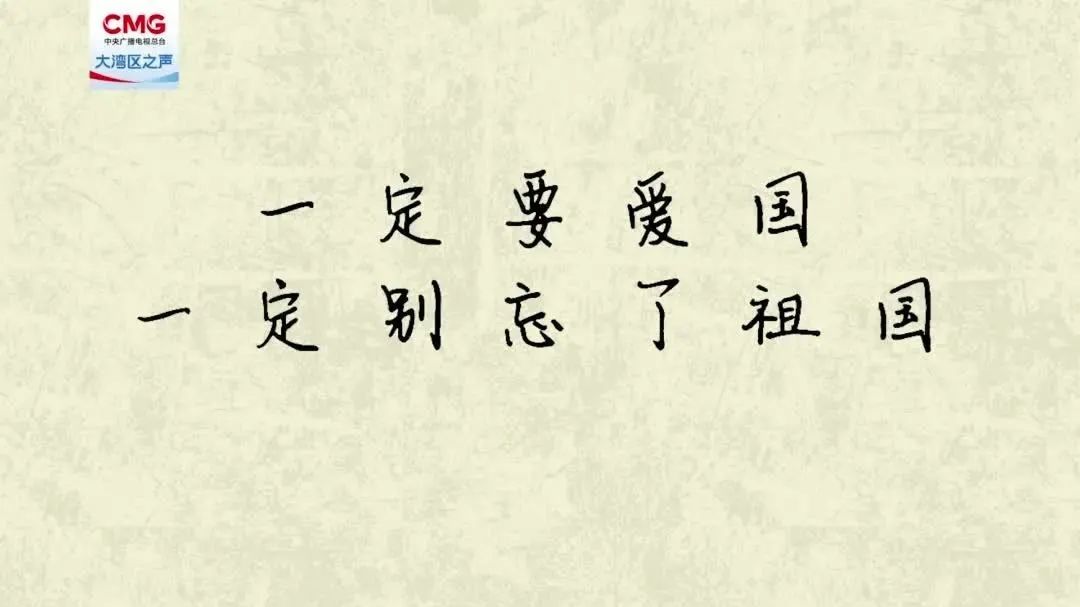 CMG
中央广播电视总台
大湾区之声
一定要爱国
一定别忘了祖国